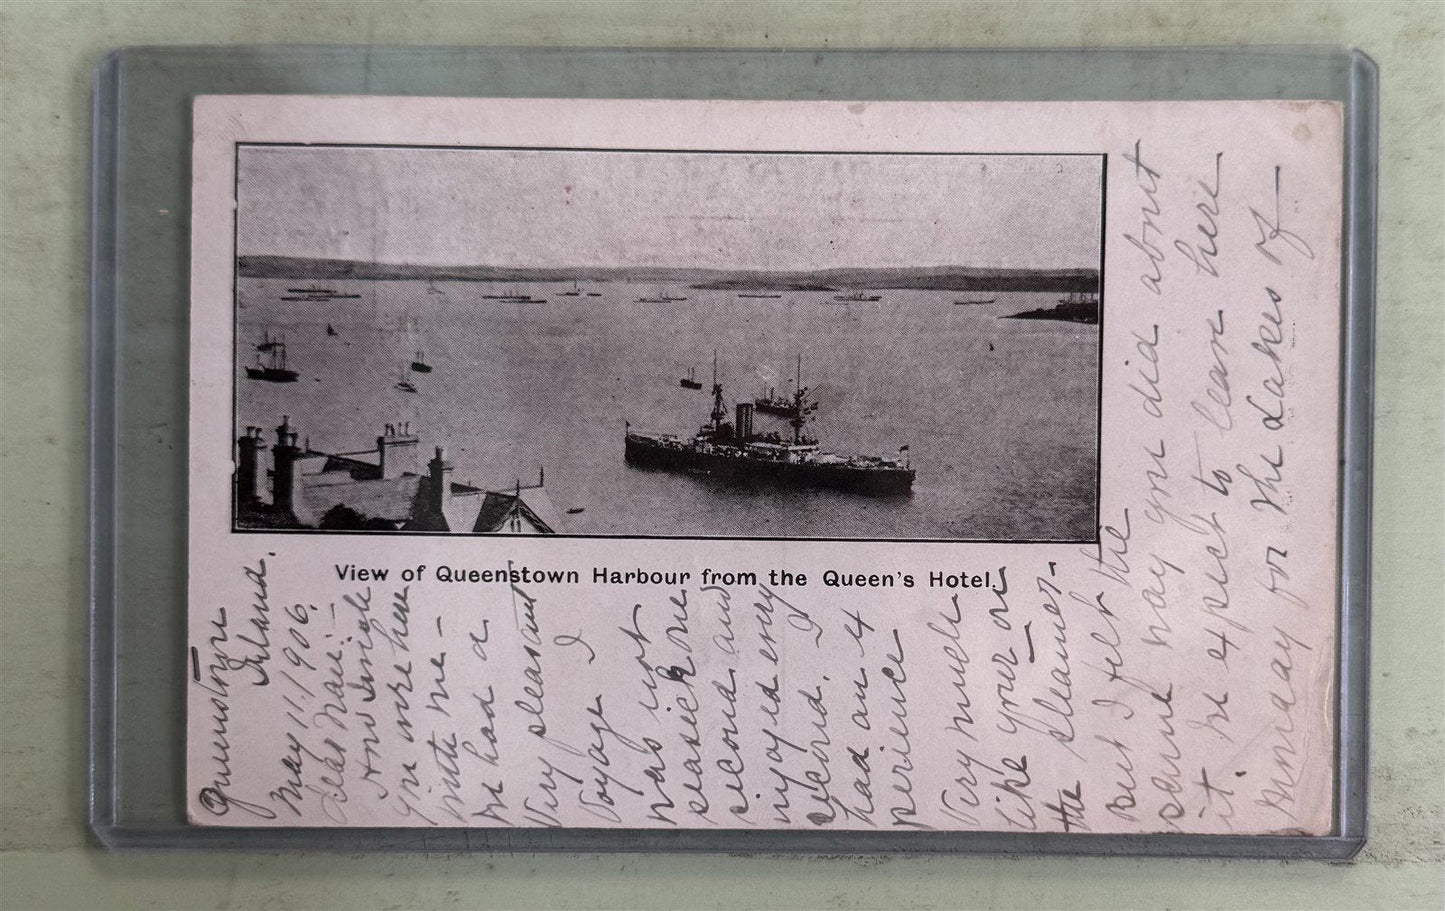 View of Queenstown Harbour from the Queen's Hotel.
Queenstown
Ireland.
May 11, 1906.
Dear
How I wish
you were here
with me –
We had a
very pleasant
voyage I
was not
seasick one
second and
enjoyed every
second. I
had an ex
perience
very much
like yours on
the steamer.
but I felt the
same way you did about
it. We expect to leave here
Sunday for the Lakes of –